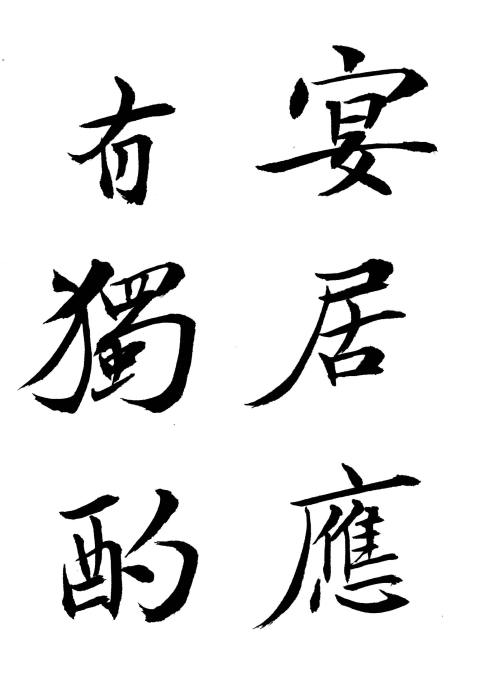 宴居應
有獨酌